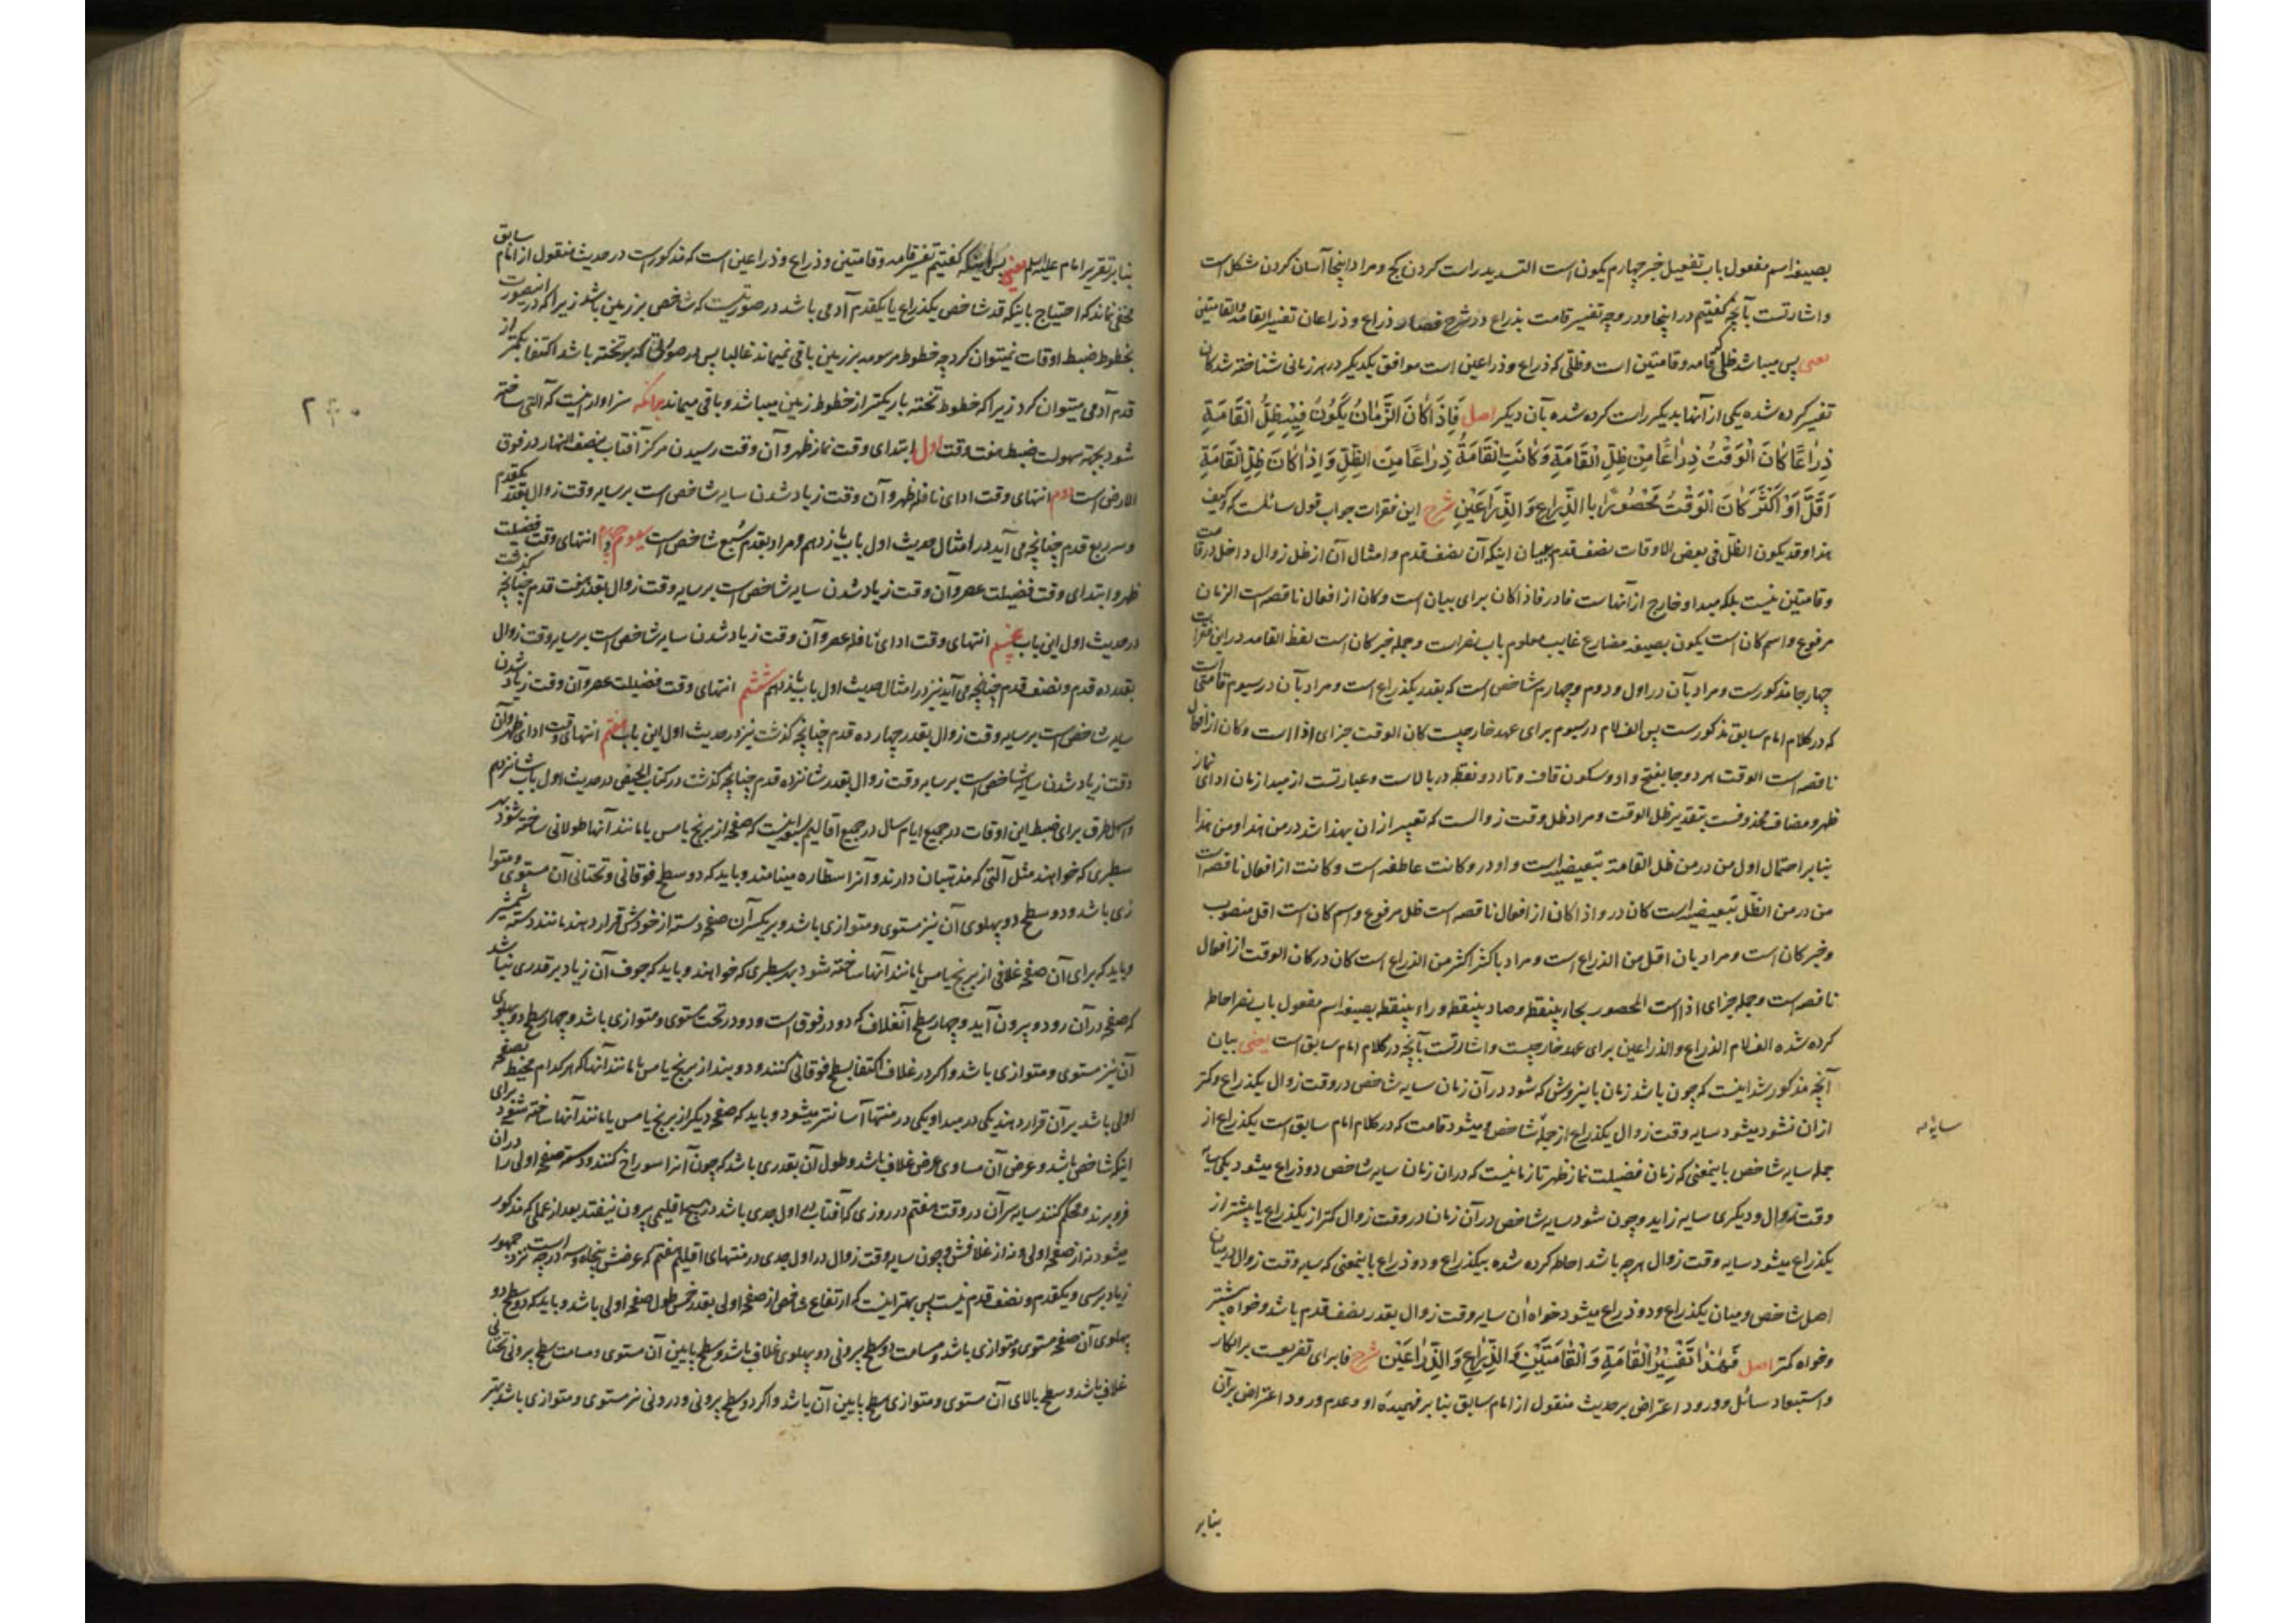 بصیغهٔ اسم مفعول باب تفعیل خبر چهارم یکون است التسدید راست کردن کج و مراد اینجا آسان کردن شکل است
واشارتست بآنچه گفتیم در اینجا و در وجه تفسیر قامت بذراع در شرح فصار ذراع و ذراعان تفسیر القامة والقامتین
یعنی پس میباشد ظلی که قامه و قامتین است و ظلی که ذراع و ذراعین است موافق یکدیگر در هر زمانی شناخته شدگان
تفسیر کرده شده یکی از آنها بدیگر راست کرده شده بآن دیگر اصل فَاِذَا كَانَ الزَّمَانُ يَكُونُ فِيْهِ ظِلُّ الْقَامَةِ
ذِرَاعًا كَانَ الْوَقْتُ ذِرَاعًا مِنْ ظِلِّ الْقَامَةِ وَكَانَتِ الْقَامَةُ ذِرَاعًا مِنَ الظِّلِّ وَاِذَا كَانَ ظِلُّ الْقَامَةِ
اَقَلَّ اَوْ اَكْثَرَ كَانَ الْوَقْتُ مَحْصُورًا بِالذِّرَاعِ وَ الذِّرَاعَيْنِ شرح این فقرات جواب قول سائلست که وکیف
هذا و قد یکون الظّل فی بعض الاوقات نصف قدم ببیان اینکه آن نصف قدم و امثال آن از ظل زوال داخل در قامت
و قامتین نیست بلکه مبدا و خارج از آنهاست فا در فاذا کان برای بیان است و کان از افعال ناقصه است الزمان
مرفوع و اسم کان است یکون بصیغهٔ مضارع غایب معلوم باب نصر است و جمله خبر کان است لفظ القامه در این فقرات
چهار جا مذکورست و مراد بآن در اول و دوم و چهارم شاخص است که بقدر یکذراع است و مراد بآن در سیوم قامتی است
که در کلام امام سابق مذکورست پس الف لام در سیوم برای عهد خارجیست کان الوقت جزای اذا است و کان از افعال
ناقصه است الوقت هر دو جا بفتح واو و سکون قاف و تاء دو نقطه در بالاست و عبارتست از مبدا زمان ادای نماز
ظهر و مضاف محذوفست بتقدیر ظل الوقت و مراد ظل وقت زوالست که تعبیر از ان بهذا شد در من هذا و من هذا
بنابر احتمال اول من در من ظل القامة تبعیضیه است واو در و کانت عاطفه است و کانت از افعال ناقصه است
من در من الظّل تبعیضیه است کان در و اذا کان از افعال ناقصه است ظل مرفوع و اسم کان است اقل منصوب
و خبر کان است و مراد بان اقل من الذراع است و مراد باکثر اکثر من الذراع است کان در کان الوقت از افعال
ناقصه است و جمله جزای اذا است المحصور بحاء بینقطه و صاد بینقطه و راء بینقطه بصیغهٔ اسم مفعول باب نصر احاطه
کرده شده الف لام الذراع و الذراعین برای عهد خارجیست و اشارتست بآنچه در کلام امام سابق است یعنی بیان
آنچه مذکور شد اینست که چون باشد زمان باین روش که شود در آن زمان سایه شاخص در وقت زوال یکذراع و کمتر
از ان نشود میشود سایه وقت زوال یکذراع از جملهٔ شاخص و میشود قامت که در کلام امام سابق است یکذراع از
جمله سایه شاخص باینمعنی که زمان فضیلت نماز ظهر تا زمانیست که در ان زمان سایه شاخص دو ذراع میشود یکی سایهٔ
وقت زوال و دیگری سایه زاید و چون شود سایه شاخص در آن زمان در وقت زوال کمتر از یکذراع یا بیشتر از
یکذراع میشود سایه وقت زوال هر چه باشد احاطه کرده شده بیکذراع و دو ذراع باینمعنی که سایه وقت زوال در میان
اصل شاخص و میان یکذراع و دو ذراع میشود خواه آن سایه وقت زوال بقدر نصف قدم باشد و خواه بیشتر
و خواه کمتر اصل فَهٰذَا تَفْسِيْرُ الْقَامَةِ وَ الْقَامَتَيْنِ وَ الذِّرَاعِ وَ الذِّرَاعَيْنِ شرح فا برای تفریعست بر انکار
و استبعاد سائل و ورود اعتراض بر حدیث منقول از امام سابق بنابر فهمیدهٔ او و عدم ورود اعتراض بر آن
بنابر
سایهٔ
بنابر تقریر امام علیه السلم یعنی پس اینکه گفتیم تفسیر قامه و قامتین و ذراع و ذراعین است که مذکورست در حدیث منقول از امام سابق
مخفی نماند که احتیاج باینکه قد شاخص یکذراع یا یکقدم آدمی باشد در صورتیست که شاخص بر زمین باشد زیرا که در اینصورت
بخطوط ضبط اوقات نمیتوان کرد چه خطوط مرسومه بر زمین باقی نمیماند غالبا پس در صورتی که بر تخته باشد اکتفا بکمتر از
قدم آدمی میتوان کرد زیرا که خطوط تخته باریکتر از خطوط زمین میباشد و باقی میماند بدانکه سزاوار اینست که آلتی ساخته
شود بجهة سهولت ضبط هفت وقت اول ابتدای وقت نماز ظهر و آن وقت رسیدن مرکز آفتاب بنصف النهار در فوق
الارض است دوم انتهای وقت ادای نافله ظهر و آن وقت زیاد شدن سایه شاخص است بر سایه وقت زوال بقدر یکقدم
و سه ربع قدم چنانچه می آید در امثال حدیث اول باب پانزدهم و مراد بقدم سُبع شاخص است سیوم و چهارم انتهای وقت فضیلت
ظهر و ابتدای وقت فضیلت عصر و آن وقت زیاد شدن سایه شاخص است بر سایه وقت زوال بقدر هفت قدم چنانچه گذشت
در حدیث اول این باب پنجم انتهای وقت ادای نافله عصر و آن وقت زیاد شدن سایه شاخص است بر سایه وقت زوال
بقدر ده قدم و نصف قدم چنانچه می آید نیز در امثال حدیث اول باب پانزدهم ششم انتهای وقت فضیلت عصر و آن وقت زیاد شدن
سایه شاخص است بر سایه وقت زوال بقدر چهارده قدم چنانچه گذشت نیز در حدیث اول این باب هفتم انتهای وقت ادای ظهر و آن
وقت زیاد شدن سایه شاخص است بر سایه وقت زوال بقدر شانزده قدم چنانچه گذشت در کتاب الحیض در حدیث اول باب شانزدهم
و اسهل طرق برای ضبط این اوقات در جمیع ایام سال در جمیع اقالیم سبعه اینست که صفحه از برنج یا مس یا مانند آنها طولانی ساخته شود بهر
سطبری که خواهند مثل آلتی که مذهبان دارند و آنرا سطاره مینامند و باید که دو سطح فوقانی و تحتانی آن مستوی و متوا
زی باشد و دو سطح دو پهلوی آن نیز مستوی و متوازی باشد و بر یکسر آن صفحه دسته از خودش قرار دهند مانند دسته شمشیر
و باید که برای آن صفحه غلافی از برنج یا مس یا مانند آنها ساخته شود بهر سطبری که خواهند و باید که جوف آن زیاد بر قدری نباشد
که صفحه در آن رود و بیرون آید و چهار سطح آنغلاف که دو در فوق است و دو در تحت مستوی و متوازی باشد و چهار سطح دو پهلوی
آن نیز مستوی و متوازی باشد و اگر در غلاف اکتفا بسطح فوقانی کنند و دو بند از برنج یا مس یا مانند آنها که هر کدام محیط بصفحه
اولی باشد بر آن قرار دهند یکی در مبدا و یکی در منتها آسانتر میشود و باید که صفحه دیگر از برنج یا مس یا مانند آنها ساخته شود برای
اینکه شاخص باشد و عرض آن مساوی عرض غلاف باشد و طول آن بقدری باشد که چون آنرا سوراخ کنند و دسته صفحه اولی را در ان
فرو برند و محکم کنند سایه سر آن در وقت هفتم در روزی که آفتاب در اول جدی باشد در هیچ اقلیمی بیرون نیفتد بعد از عملی که مذکور
میشود نه از صفحه اولی و نه از غلافش و چون سایه وقت زوال در اول جدی در منتهای اقلیم هفتم که عرضش پنجاه و سه درجه است نزد جمهور
زیاد بر سی و یکقدم و نصف قدم نیست پس بهتر اینست که ارتفاع شاخص از صفحه اولی بقدر خمس طول صفحه اولی باشد و باید که دو سطح دو
پهلوی آن صفحه مستوی و متوازی باشد و مسامت دو سطح بیرونی دو پهلوی غلاف باشد و سطح پایین آن مستوی و مسامت سطح بیرونی تحتانی
غلاف باشد و سطح بالای آن مستوی و متوازی سطح پایین آن باشد و اگر دو سطح بیرونی و درونی نیز مستوی و متوازی باشد بهتر